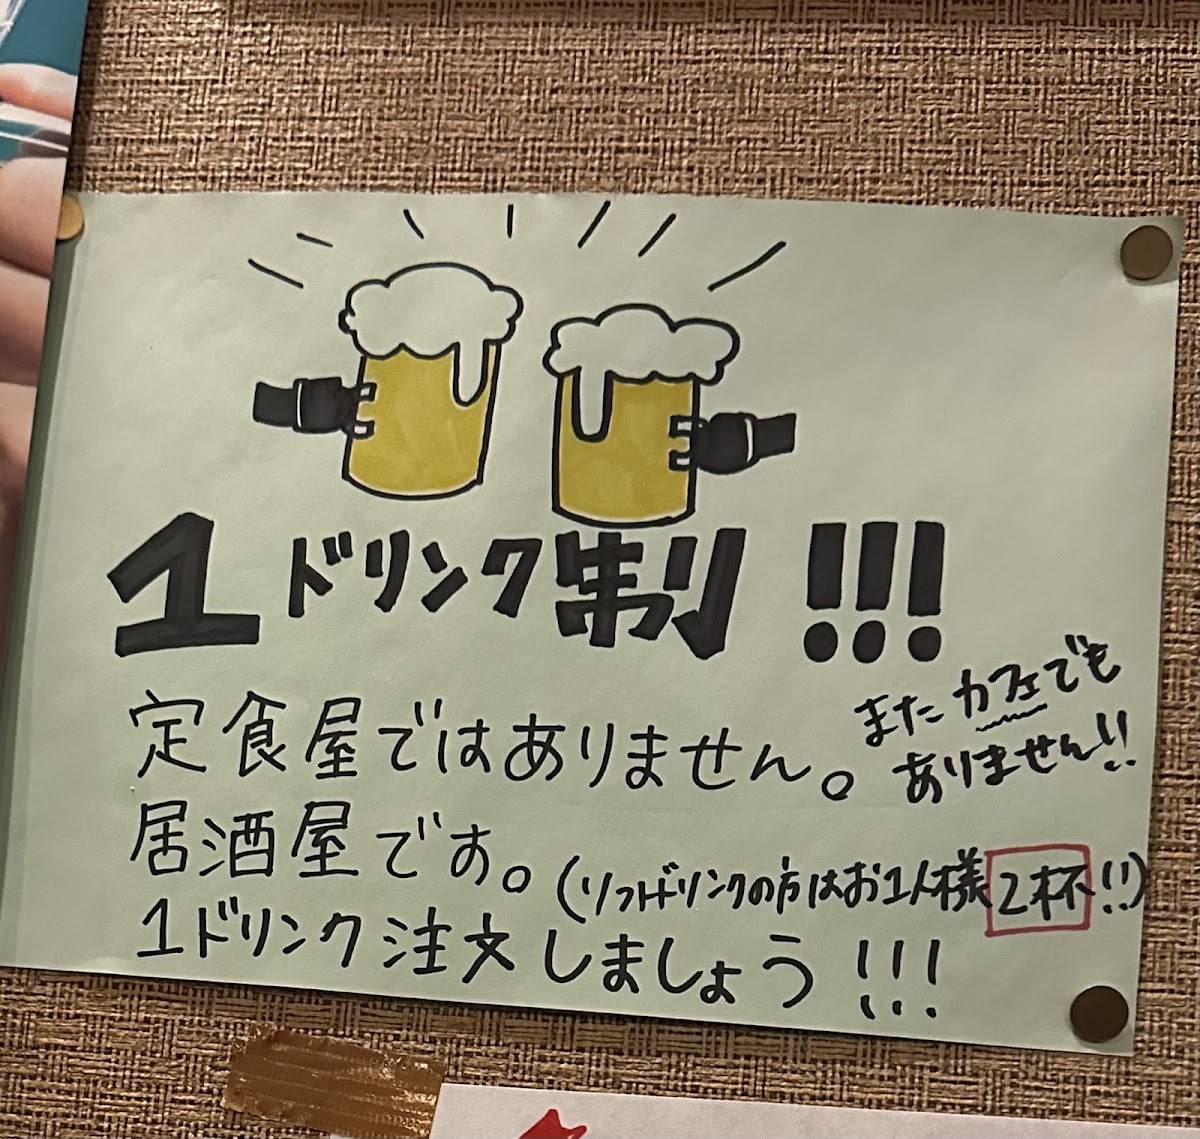 1ドリンク制!!!
定食屋ではありません。
またカフェでも
ありません!!
居酒屋です。
(ソフトドリンクの方はお1人様2杯!!)
1ドリンク注文しましょう!!!